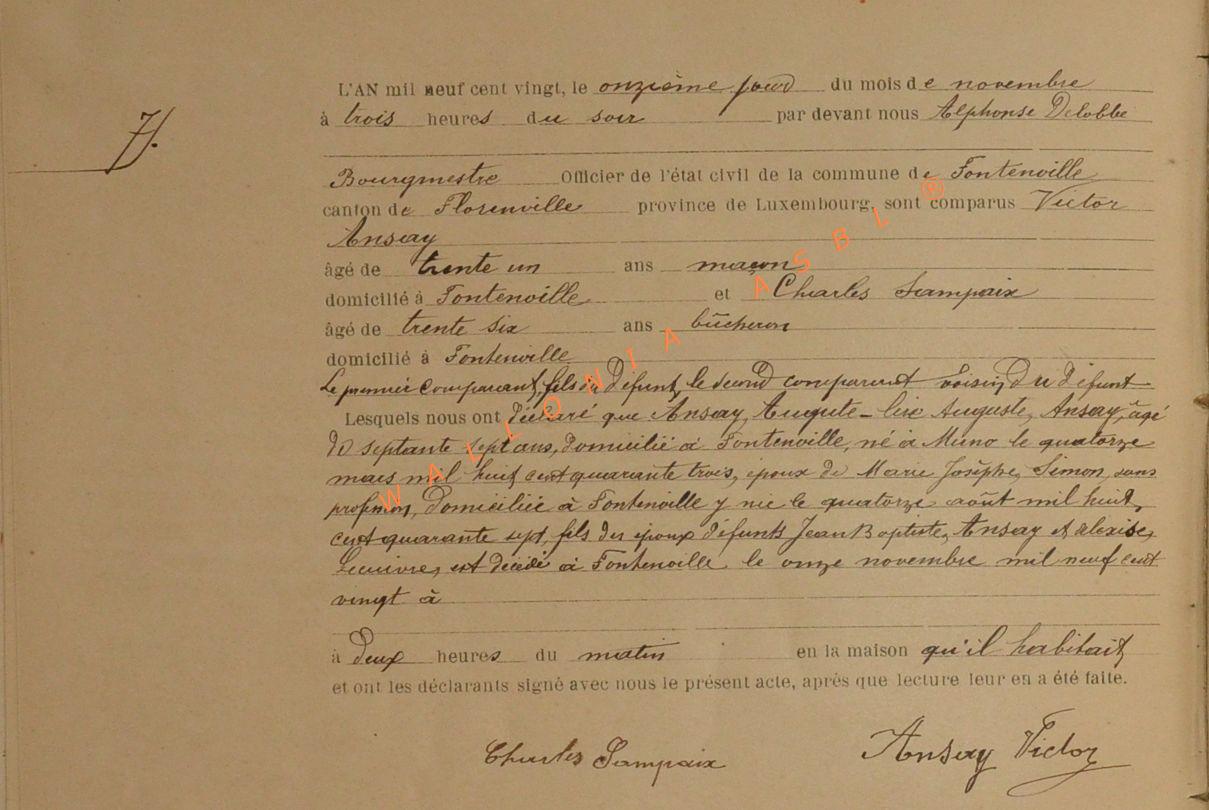 7.
L'AN mil neuf cent vingt, le onzième jour du mois de novembre
à trois heures du soir par devant nous Alphonse Delobbe
Bourgmestre Officier de l'état civil de la commune de Fontenoille
canton de Florenville province de Luxembourg, sont comparus Victor
Ansay
âgé de trente un ans maçon
domicilié à Fontenoille et Charles Sampaix
âgé de trente six ans bûcheron
domicilié à Fontenoille
Le premier comparant, fils du défunt, le second comparant voisin du défunt
Lesquels nous ont déclaré que Ansay, Auguste Auguste, Ansay, âgé
de septante sept ans, domicilié à Fontenoille, né à Muno le quatorze
mars mil huit cent quarante trois, époux de Marie Josèphe, Simon, sans
profession, domiciliée à Fontenoille y née le quatorze août mil huit
cent quarante sept, fils des époux défunts Jean Baptiste, Ansay et
est décédé à Fontenoille le onze novembre mil neuf cent
vingt à
à deux heures du matin en la maison qu'il habitait
et ont les déclarants signé avec nous le présent acte, après que lecture leur en a été faite.
Charles Sampaix Ansay Victor
WALLONIA ASBL ®